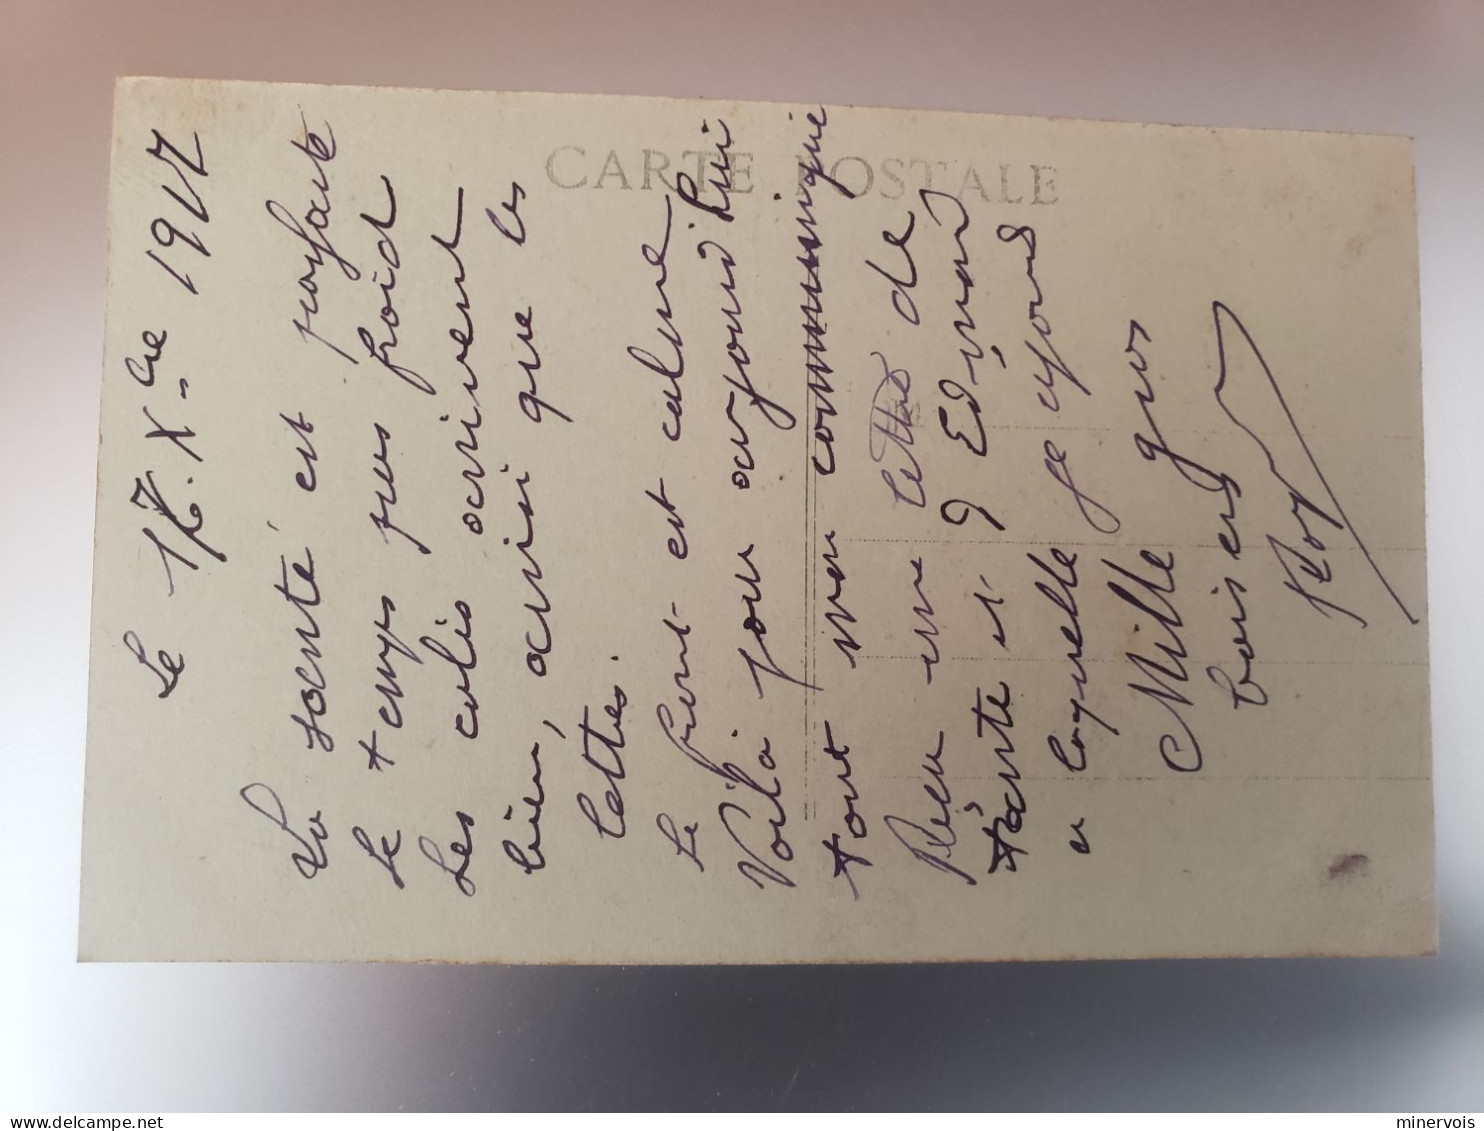 CARTE POSTALE
Le 17. Xbre 1917
La santé est parfaite
le temps pas froid
Les colis arrivent
bien, ainsi que les
lettres.
Le front est calme
Voilà pour aujourd'hui
tout mon communiqué
Reçu une lettre de
tante et Edmond
a laquelle je réponds
Mille gros
baisers
minervois